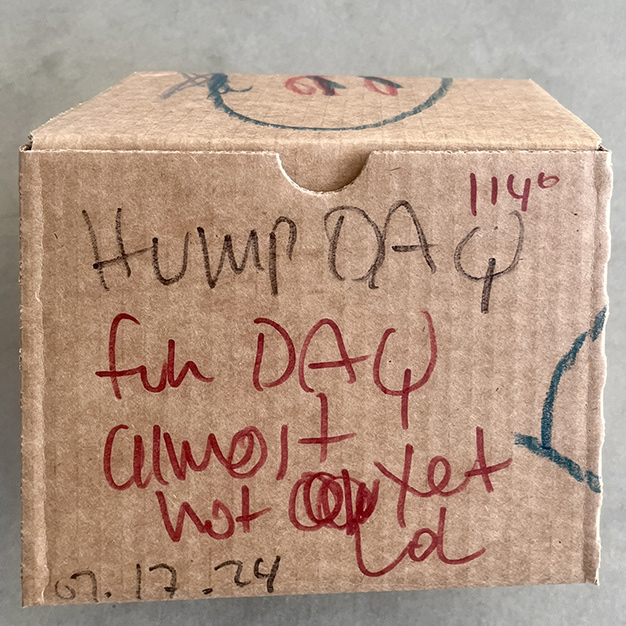 114°
HUMP DAY
fun DAY
almost
not yet
07.17.24